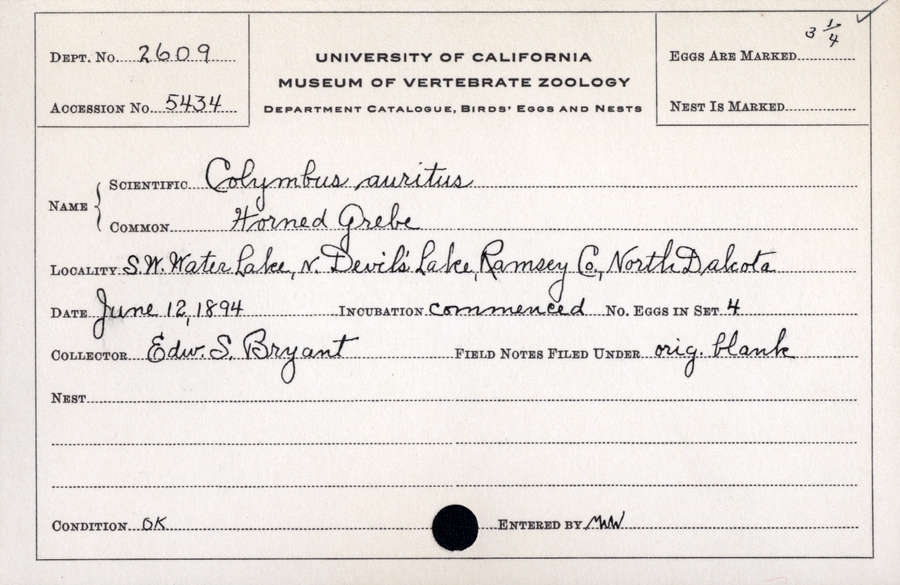 Dept. No. 2609
Accession No. 5434
UNIVERSITY OF CALIFORNIA
MUSEUM OF VERTEBRATE ZOOLOGY
Department Catalogue, Birds' Eggs and Nests
3 1/4
Eggs Are Marked
Nest Is Marked
Name { Scientific Colymbus auritus
Common Horned Grebe
Locality S.W. Water Lake, N. Devil's Lake, Ramsey Co., North Dakota
Date June 12, 1894 Incubation commenced No. Eggs in Set 4
Collector Edw. S. Bryant Field Notes Filed Under orig. blank
Nest
Condition OK Entered by